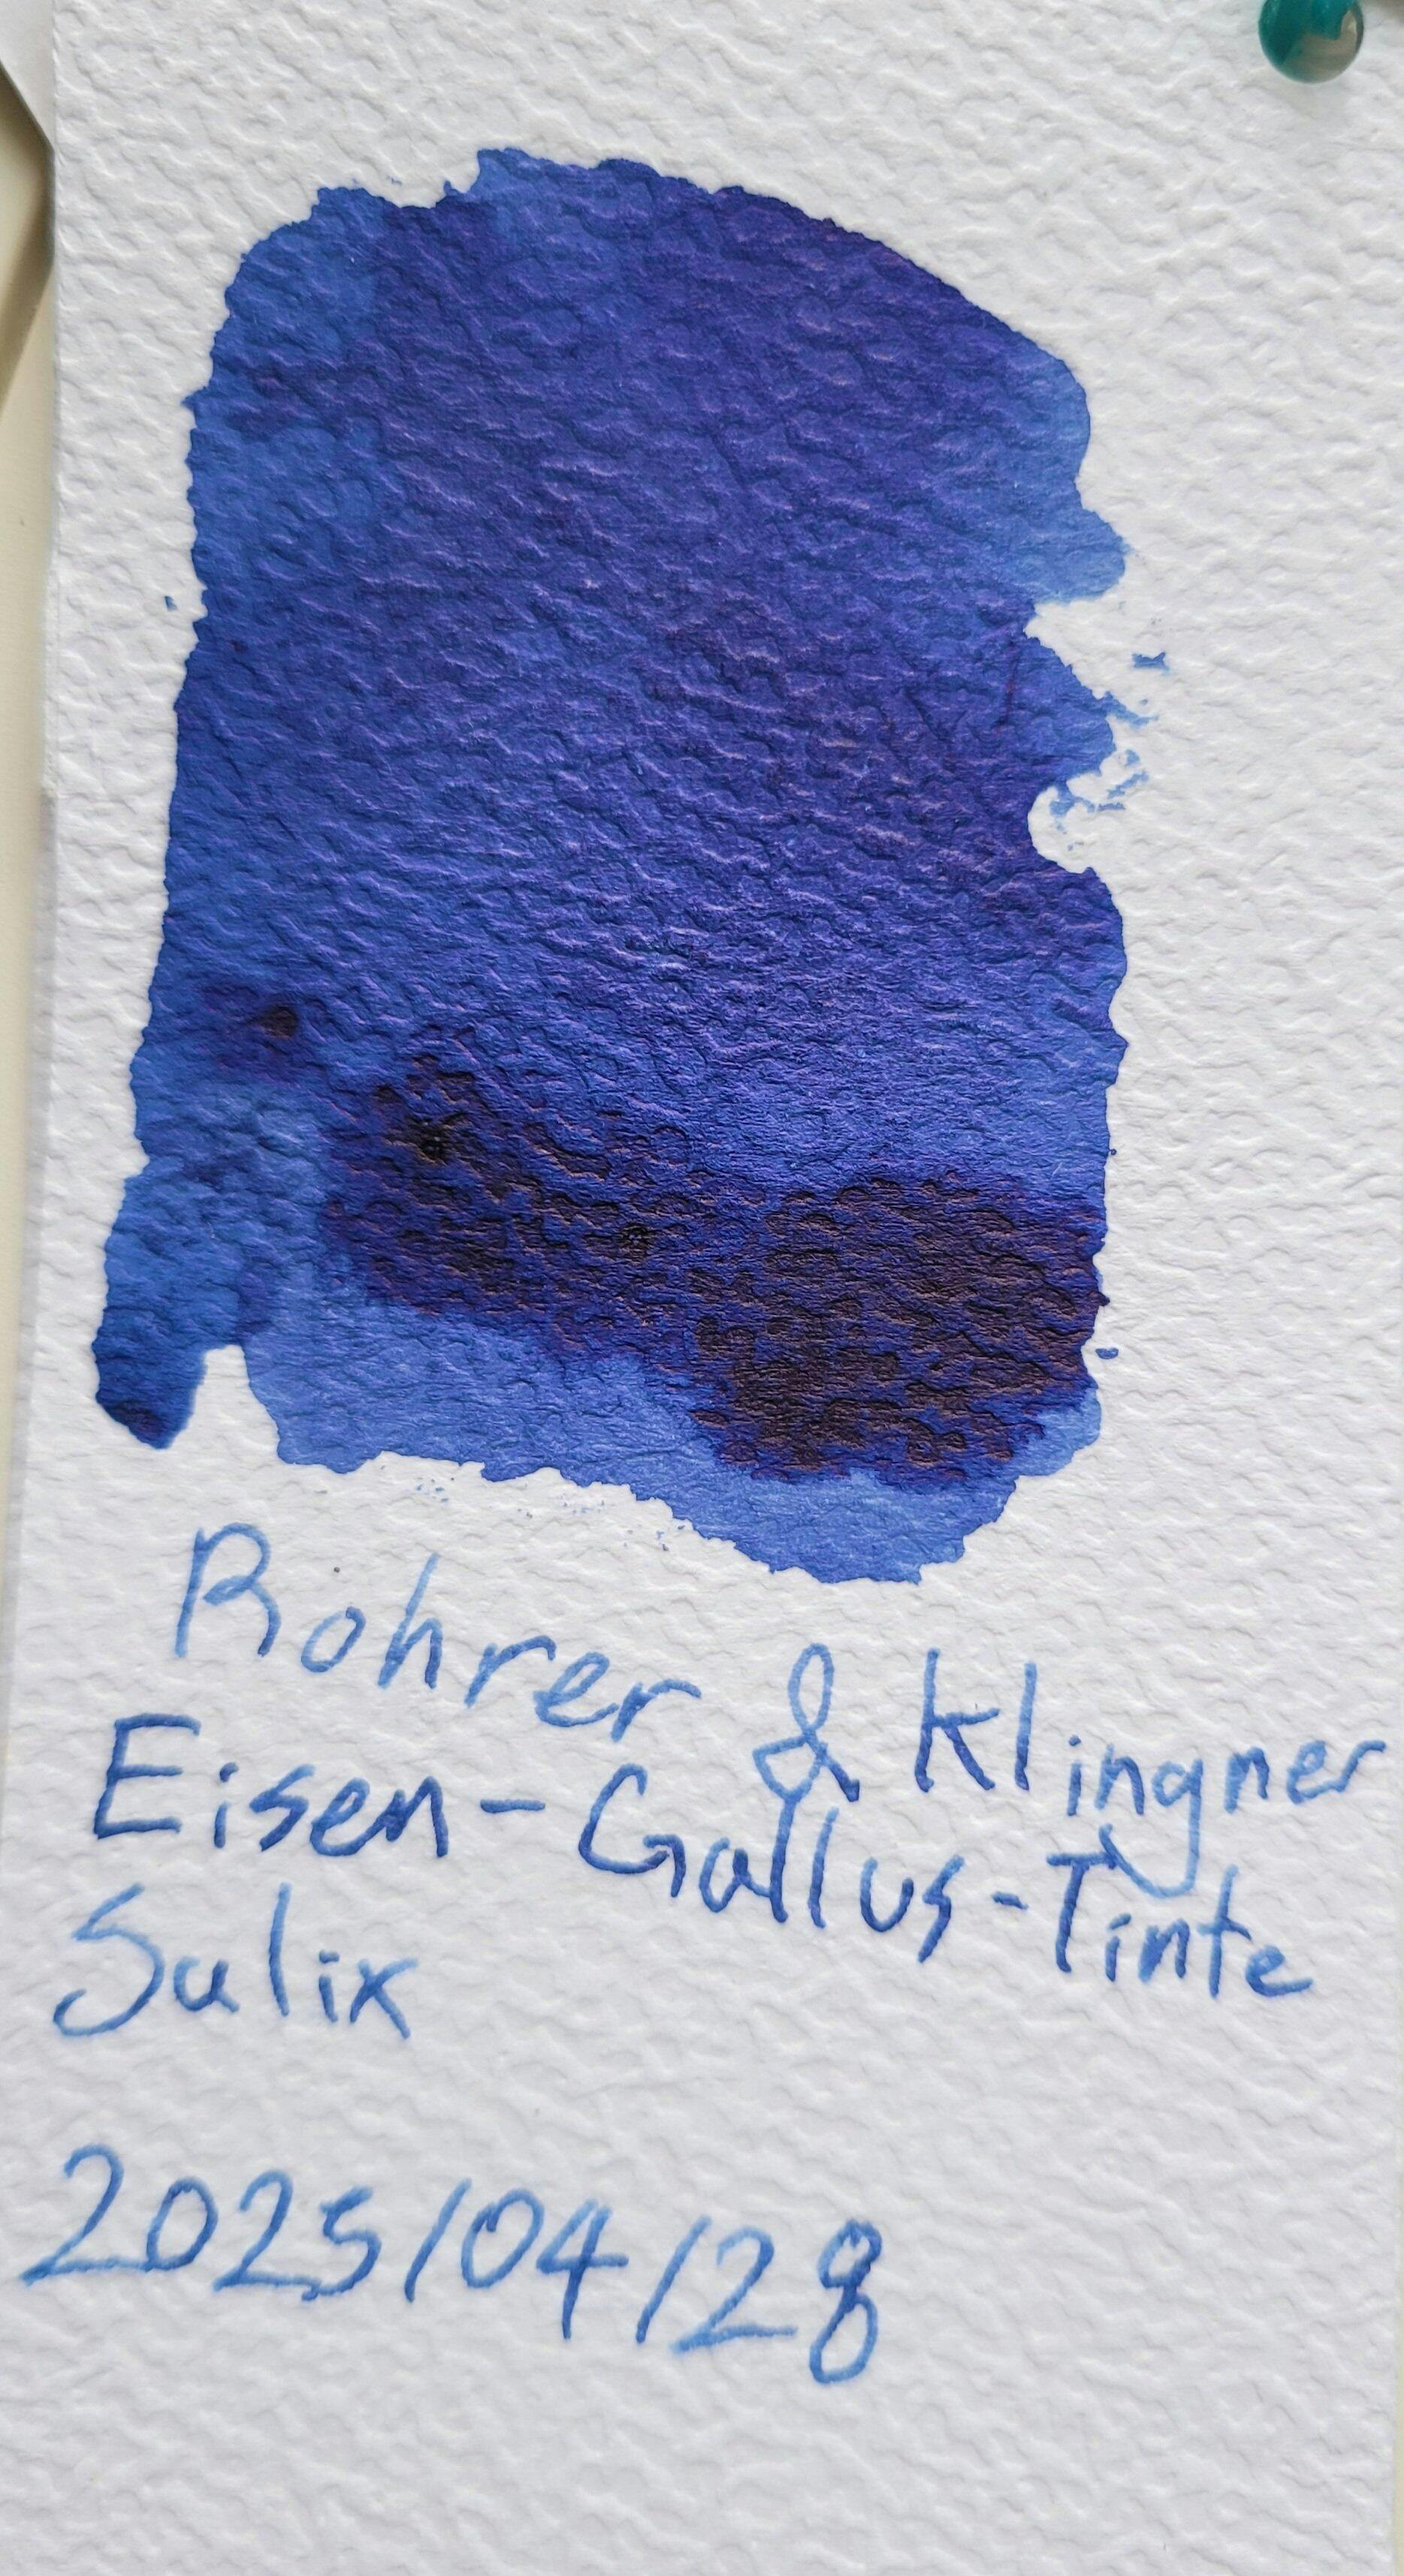 Rohrer & Klingner
Eisen-Gallus-Tinte
Salix
2025/04/28